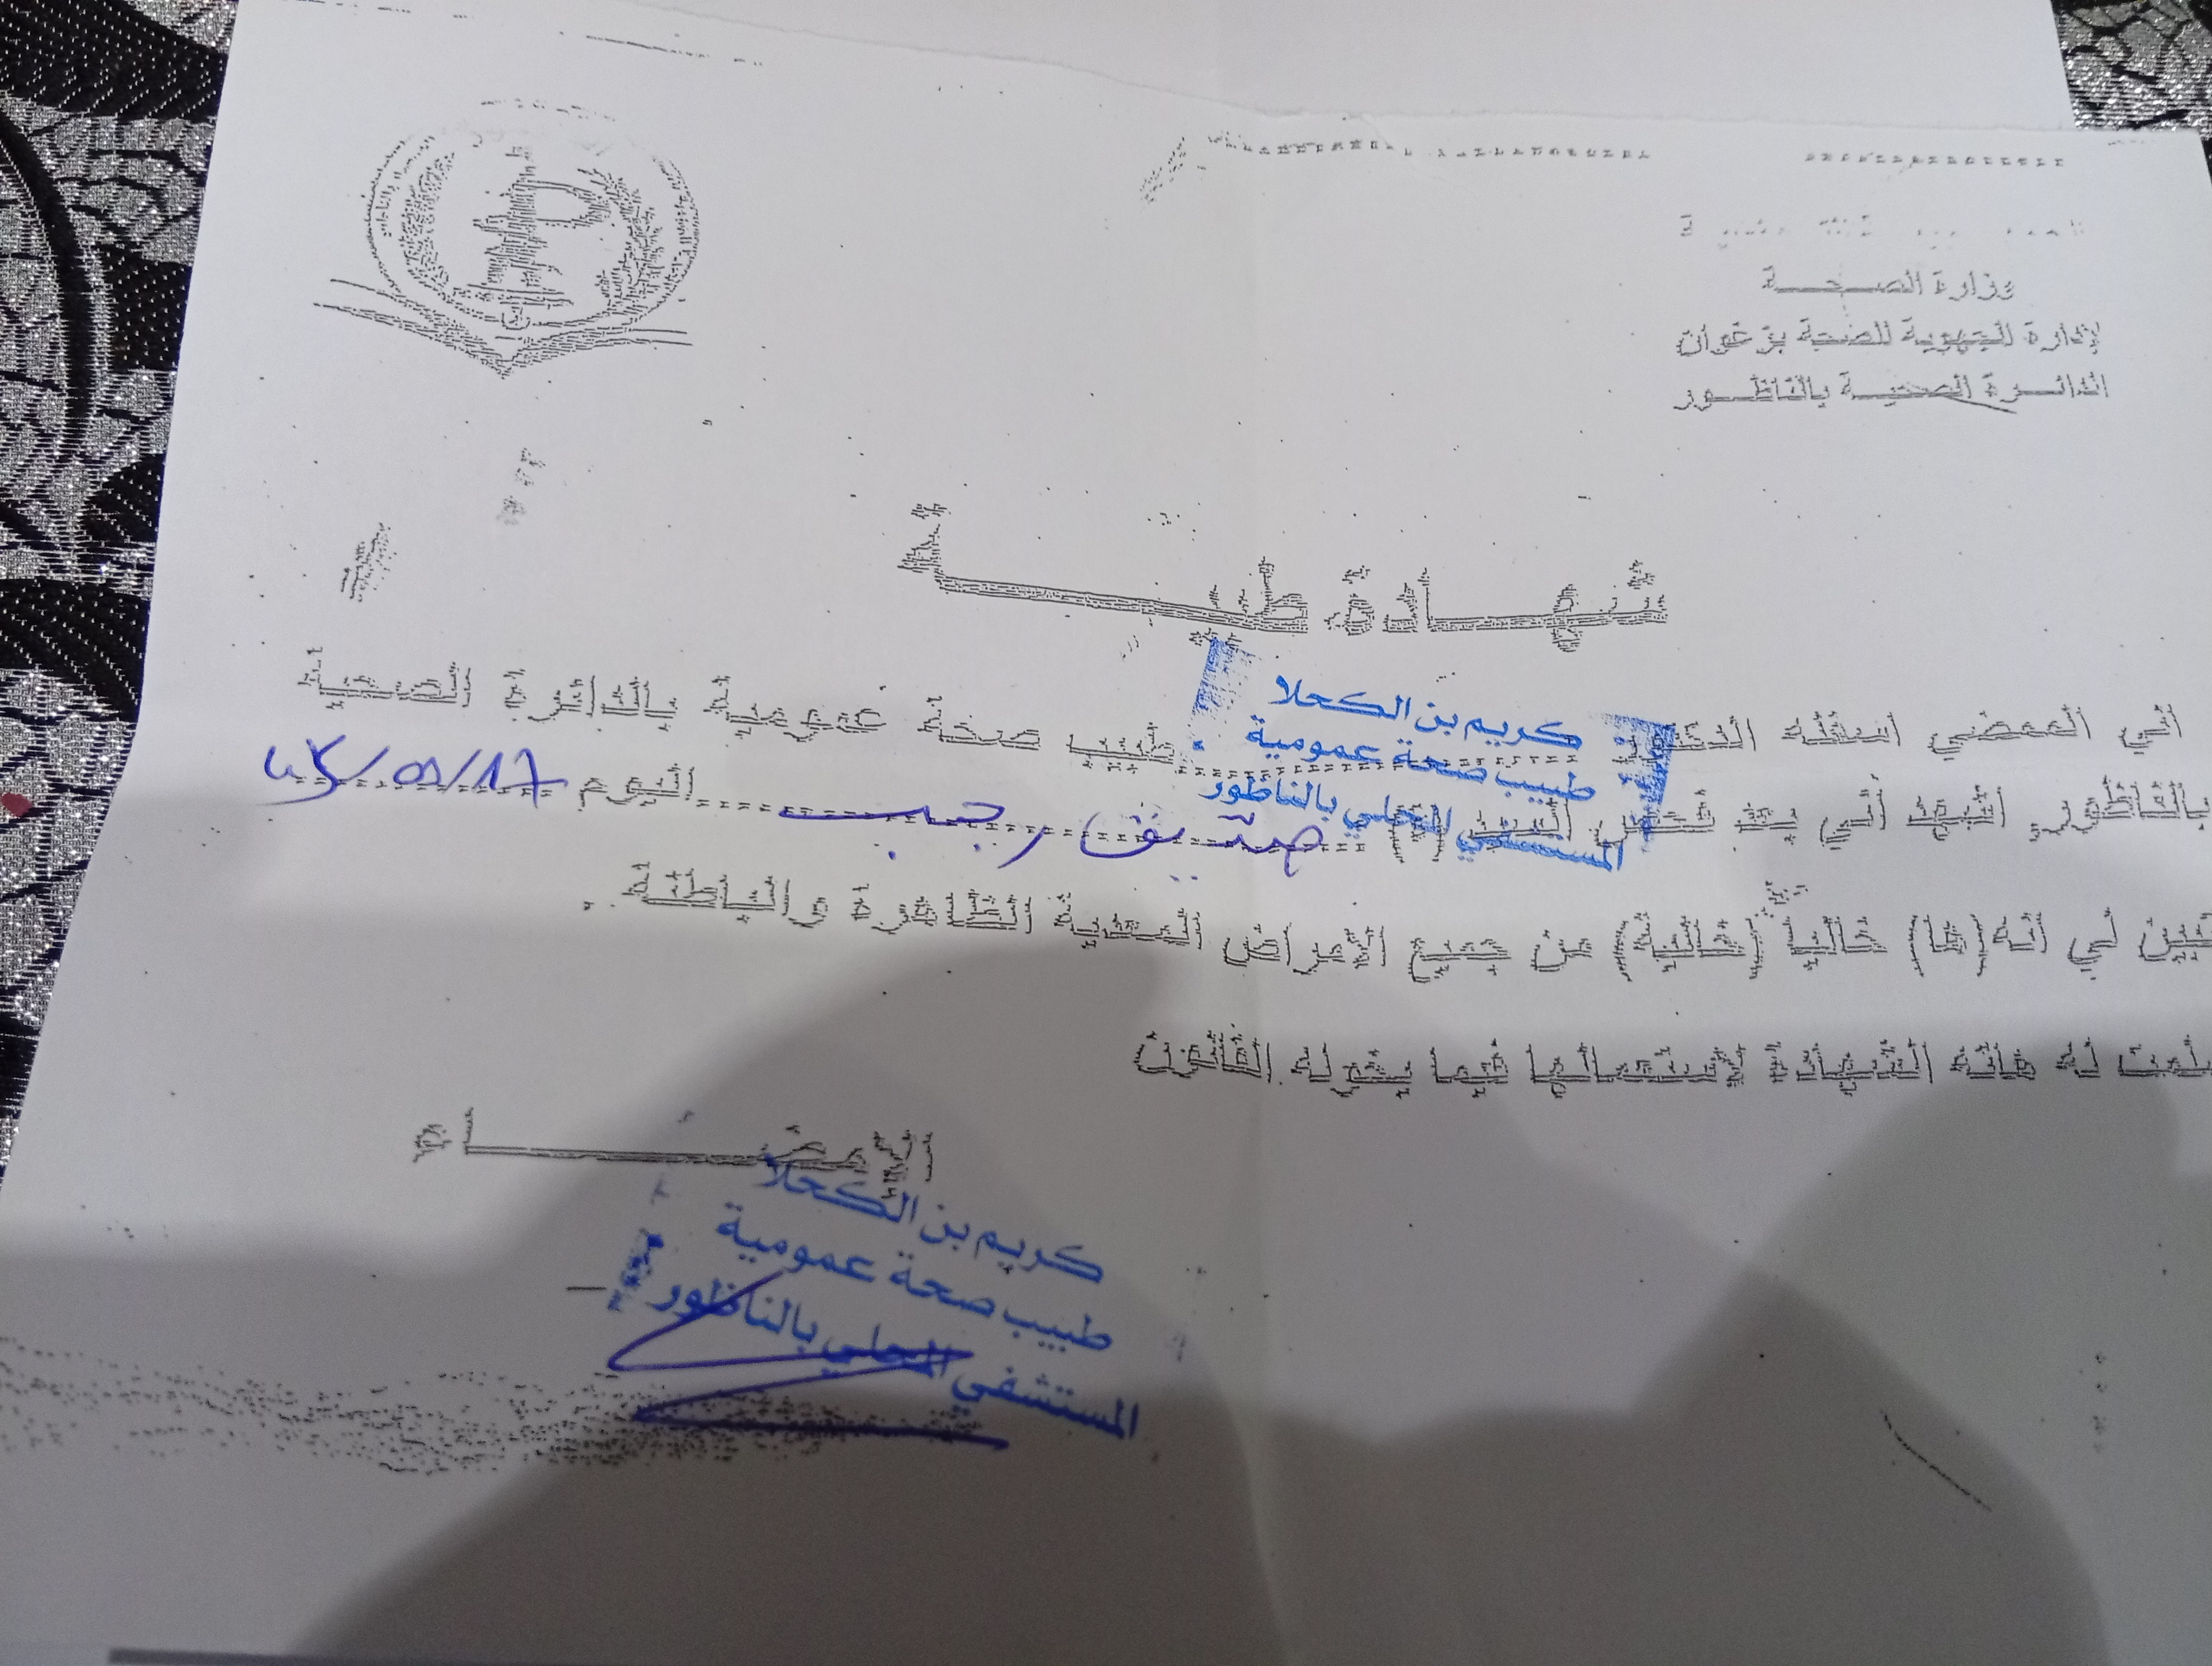 وزارة الصـــحـــة
الإدارة الجهوية للصحة بزغوان
الدائـــرة الصحيـــة بالناظـــور
شهـــادة طبيـــة
إني الممضي أسفله الدكتور كريم بن الكحلا طبيب صحة عمومية بالدائرة الصحية
طبيب صحة عمومية
المستشفى المحلي بالناظور
بالناظور، أشهد أني بعد فحص السيد (ة) رجب اليوم
تبين لي أنه(ها) خالياً (خالية) من جميع الأمراض المعدية الظاهرة والباطنة.
سلمت له هاته الشهادة لاستعمالها فيما يخوله القانون
الإمضـــاء
كريم بن الكحلا
طبيب صحة عمومية
المستشفى المحلي بالناظور